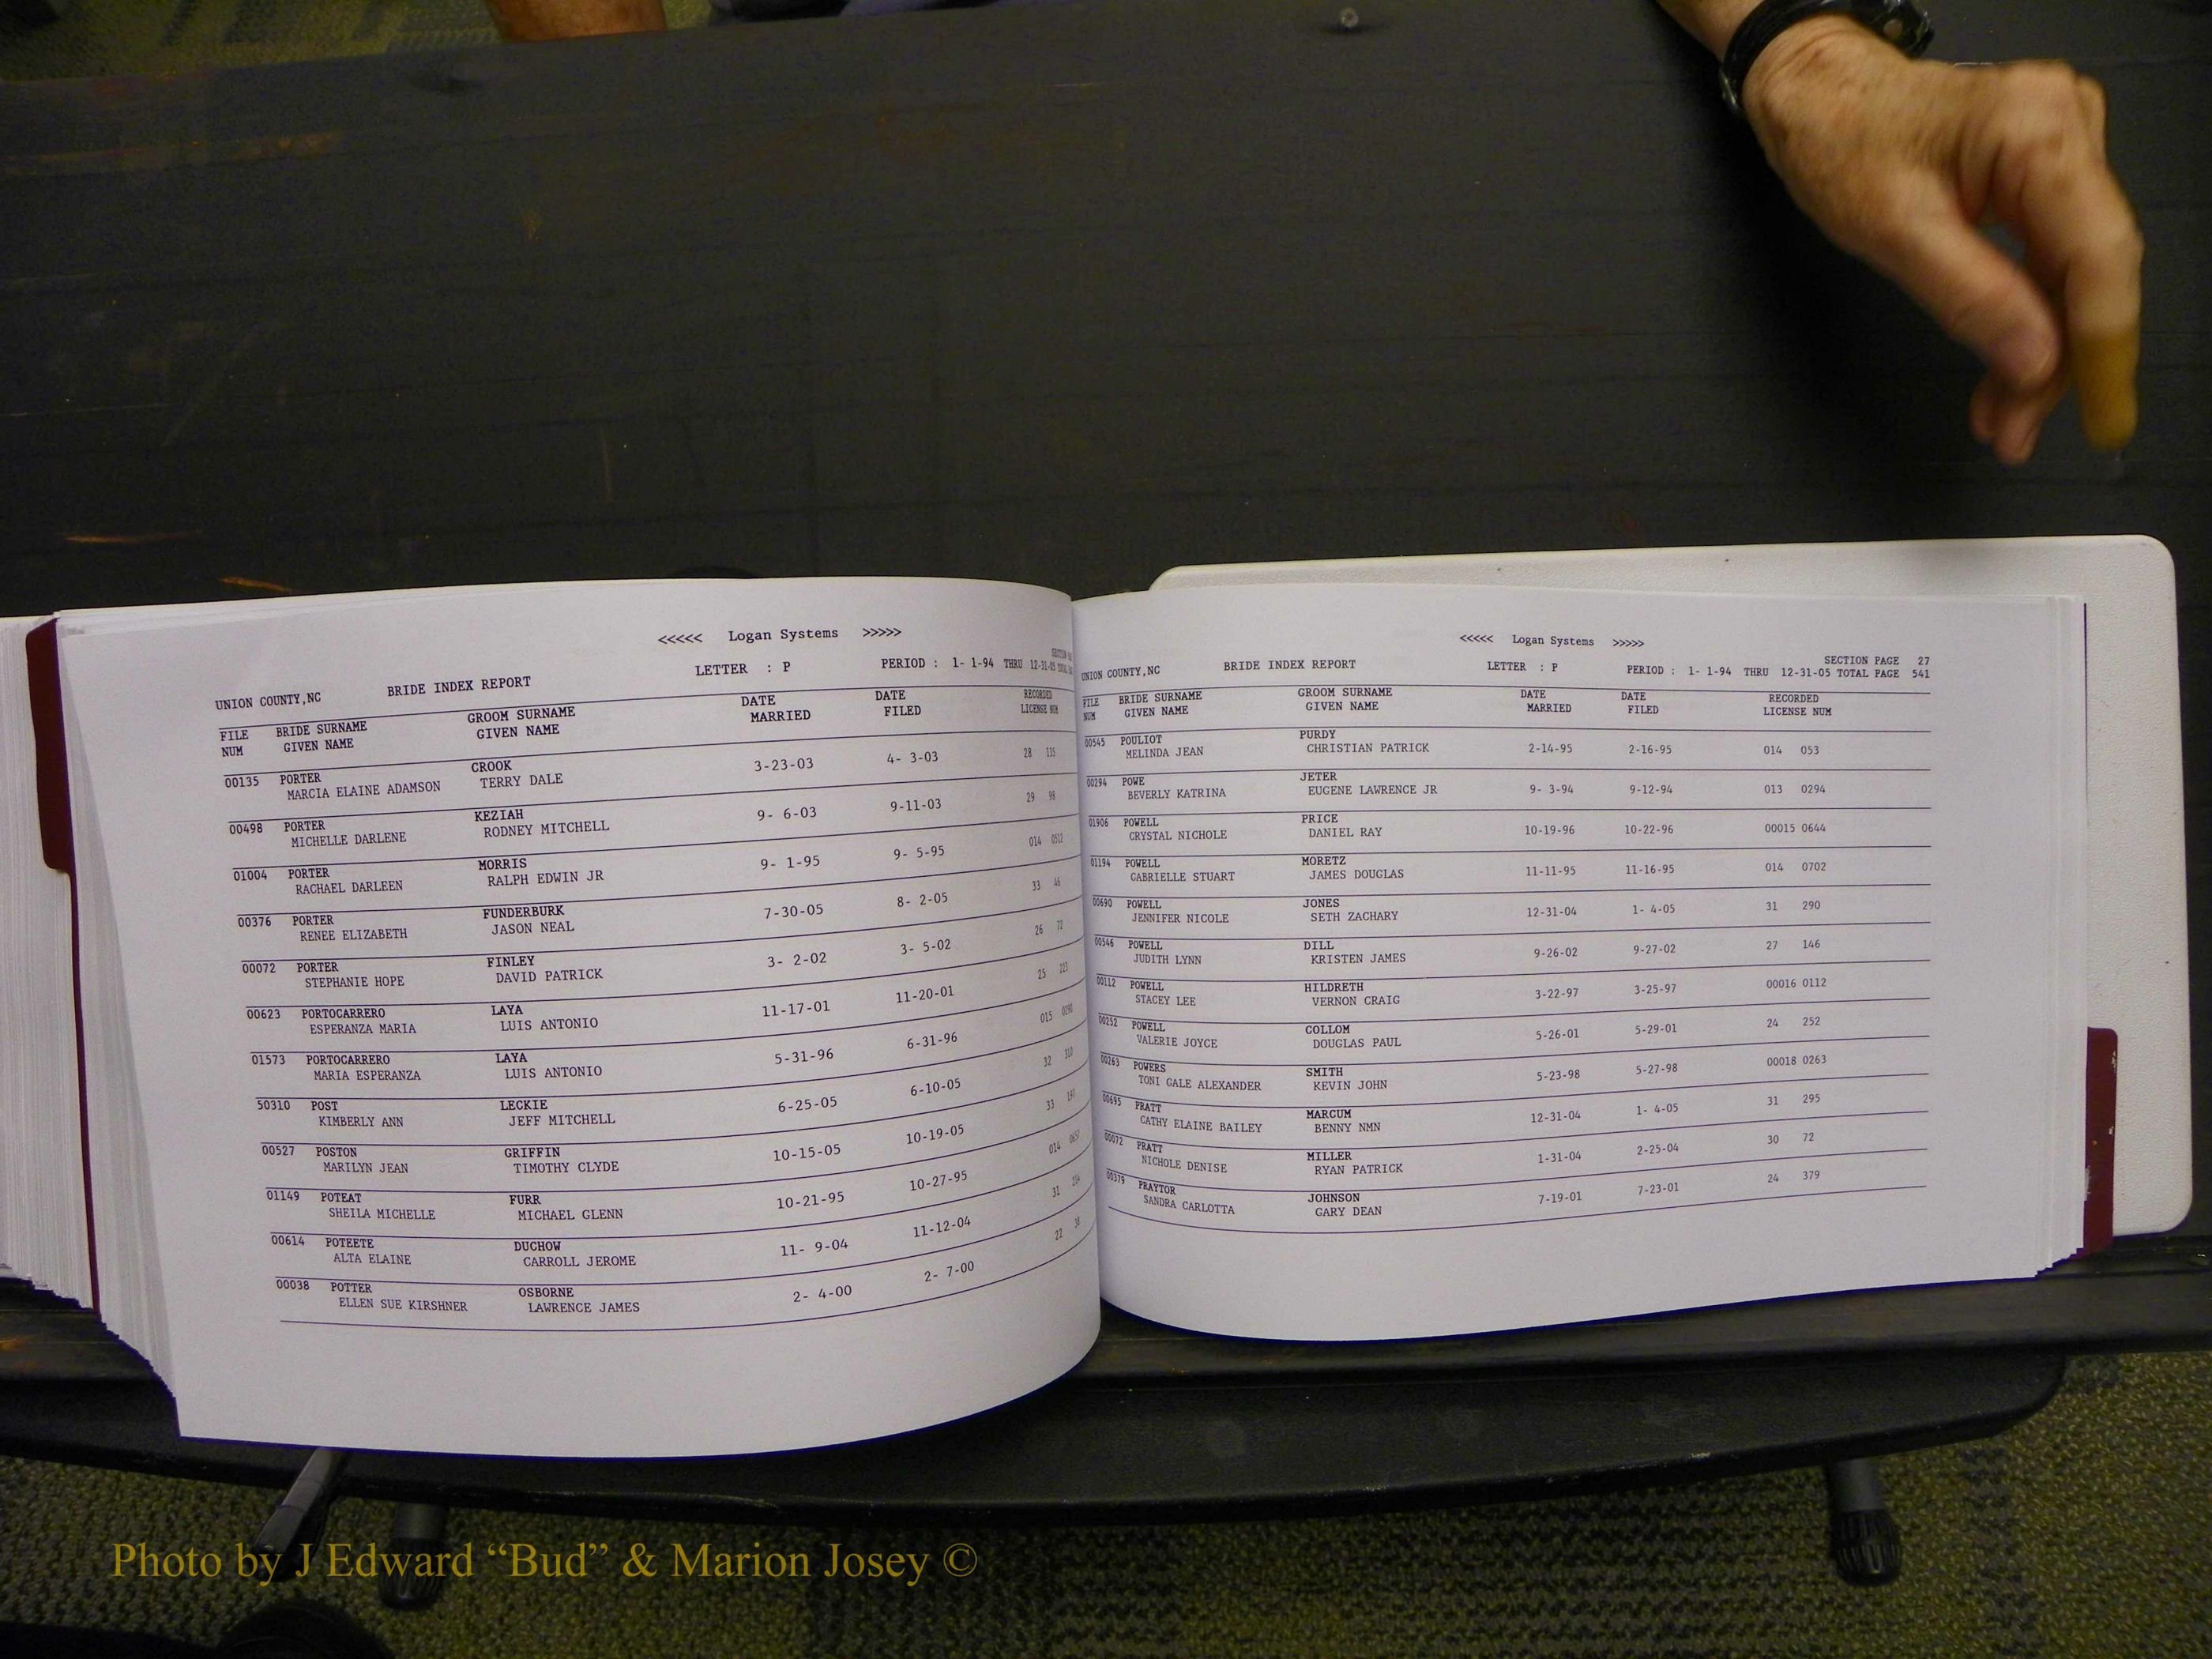 <<<<< Logan Systems >>>>>
UNION COUNTY,NC BRIDE INDEX REPORT LETTER : P PERIOD : 1- 1-94 THRU 12-31-05
FILE BRIDE SURNAME GROOM SURNAME DATE DATE RECORDED
NUM GIVEN NAME GIVEN NAME MARRIED FILED LICENSE NUM
00135 PORTER CROOK 3-23-03 4- 3-03 28
MARCIA ELAINE ADAMSON TERRY DALE
00498 PORTER KEZIAH 9- 6-03 9-11-03 29 98
MICHELLE DARLENE RODNEY MITCHELL
01004 PORTER MORRIS 9- 1-95 9- 5-95 014 0512
RACHAEL DARLEEN RALPH EDWIN JR
00376 PORTER FUNDERBURK 7-30-05 8- 2-05 33 46
RENEE ELIZABETH JASON NEAL
00072 PORTER FINLEY 3- 2-02 3- 5-02 26 72
STEPHANIE HOPE DAVID PATRICK
00623 PORTOCARRERO LAYA 11-17-01 11-20-01 25 223
ESPERANZA MARIA LUIS ANTONIO
01573 PORTOCARRERO LAYA 5-31-96 6-31-96 015
MARIA ESPERANZA LUIS ANTONIO
50310 POST LECKIE 6-25-05 6-10-05 32 310
KIMBERLY ANN JEFF MITCHELL
00527 POSTON GRIFFIN 10-15-05 10-19-05 33 197
MARILYN JEAN TIMOTHY CLYDE
01149 POTEAT FURR 10-21-95 10-27-95 014 0657
SHEILA MICHELLE MICHAEL GLENN
00614 POTEETE DUCHOW 11- 9-04 11-12-04 31 214
ALTA ELAINE CARROLL JEROME
00038 POTTER OSBORNE 2- 4-00 2- 7-00 22 38
ELLEN SUE KIRSHNER LAWRENCE JAMES
<<<<< Logan Systems >>>>>
SECTION PAGE 27
UNION COUNTY,NC BRIDE INDEX REPORT LETTER : P PERIOD : 1- 1-94 THRU 12-31-05 TOTAL PAGE 541
FILE BRIDE SURNAME GROOM SURNAME DATE DATE RECORDED
NUM GIVEN NAME GIVEN NAME MARRIED FILED LICENSE NUM
00545 POULIOT PURDY 2-14-95 2-16-95 014 053
MELINDA JEAN CHRISTIAN PATRICK
00294 POWE JETER 9- 3-94 9-12-94 013 0294
BEVERLY KATRINA EUGENE LAWRENCE JR
01906 POWELL PRICE 10-19-96 10-22-96 00015 0644
CRYSTAL NICHOLE DANIEL RAY
01194 POWELL MORETZ 11-11-95 11-16-95 014 0702
GABRIELLE STUART JAMES DOUGLAS
00690 POWELL JONES 12-31-04 1- 4-05 31 290
JENNIFER NICOLE SETH ZACHARY
00546 POWELL DILL 9-26-02 9-27-02 27 146
JUDITH LYNN KRISTEN JAMES
00112 POWELL HILDRETH 3-22-97 3-25-97 00016 0112
STACEY LEE VERNON CRAIG
00252 POWELL COLLOM 5-26-01 5-29-01 24 252
VALERIE JOYCE DOUGLAS PAUL
00263 POWERS SMITH 5-23-98 5-27-98 00018 0263
TONI GALE ALEXANDER KEVIN JOHN
00695 PRATT MARCUM 12-31-04 1- 4-05 31 295
CATHY ELAINE BAILEY BENNY NMN
00072 PRATT MILLER 1-31-04 2-25-04 30 72
NICHOLE DENISE RYAN PATRICK
00379 PRAYTOR JOHNSON 7-19-01 7-23-01 24 379
SANDRA CARLOTTA GARY DEAN
Photo by J Edward “Bud” & Marion Josey ©